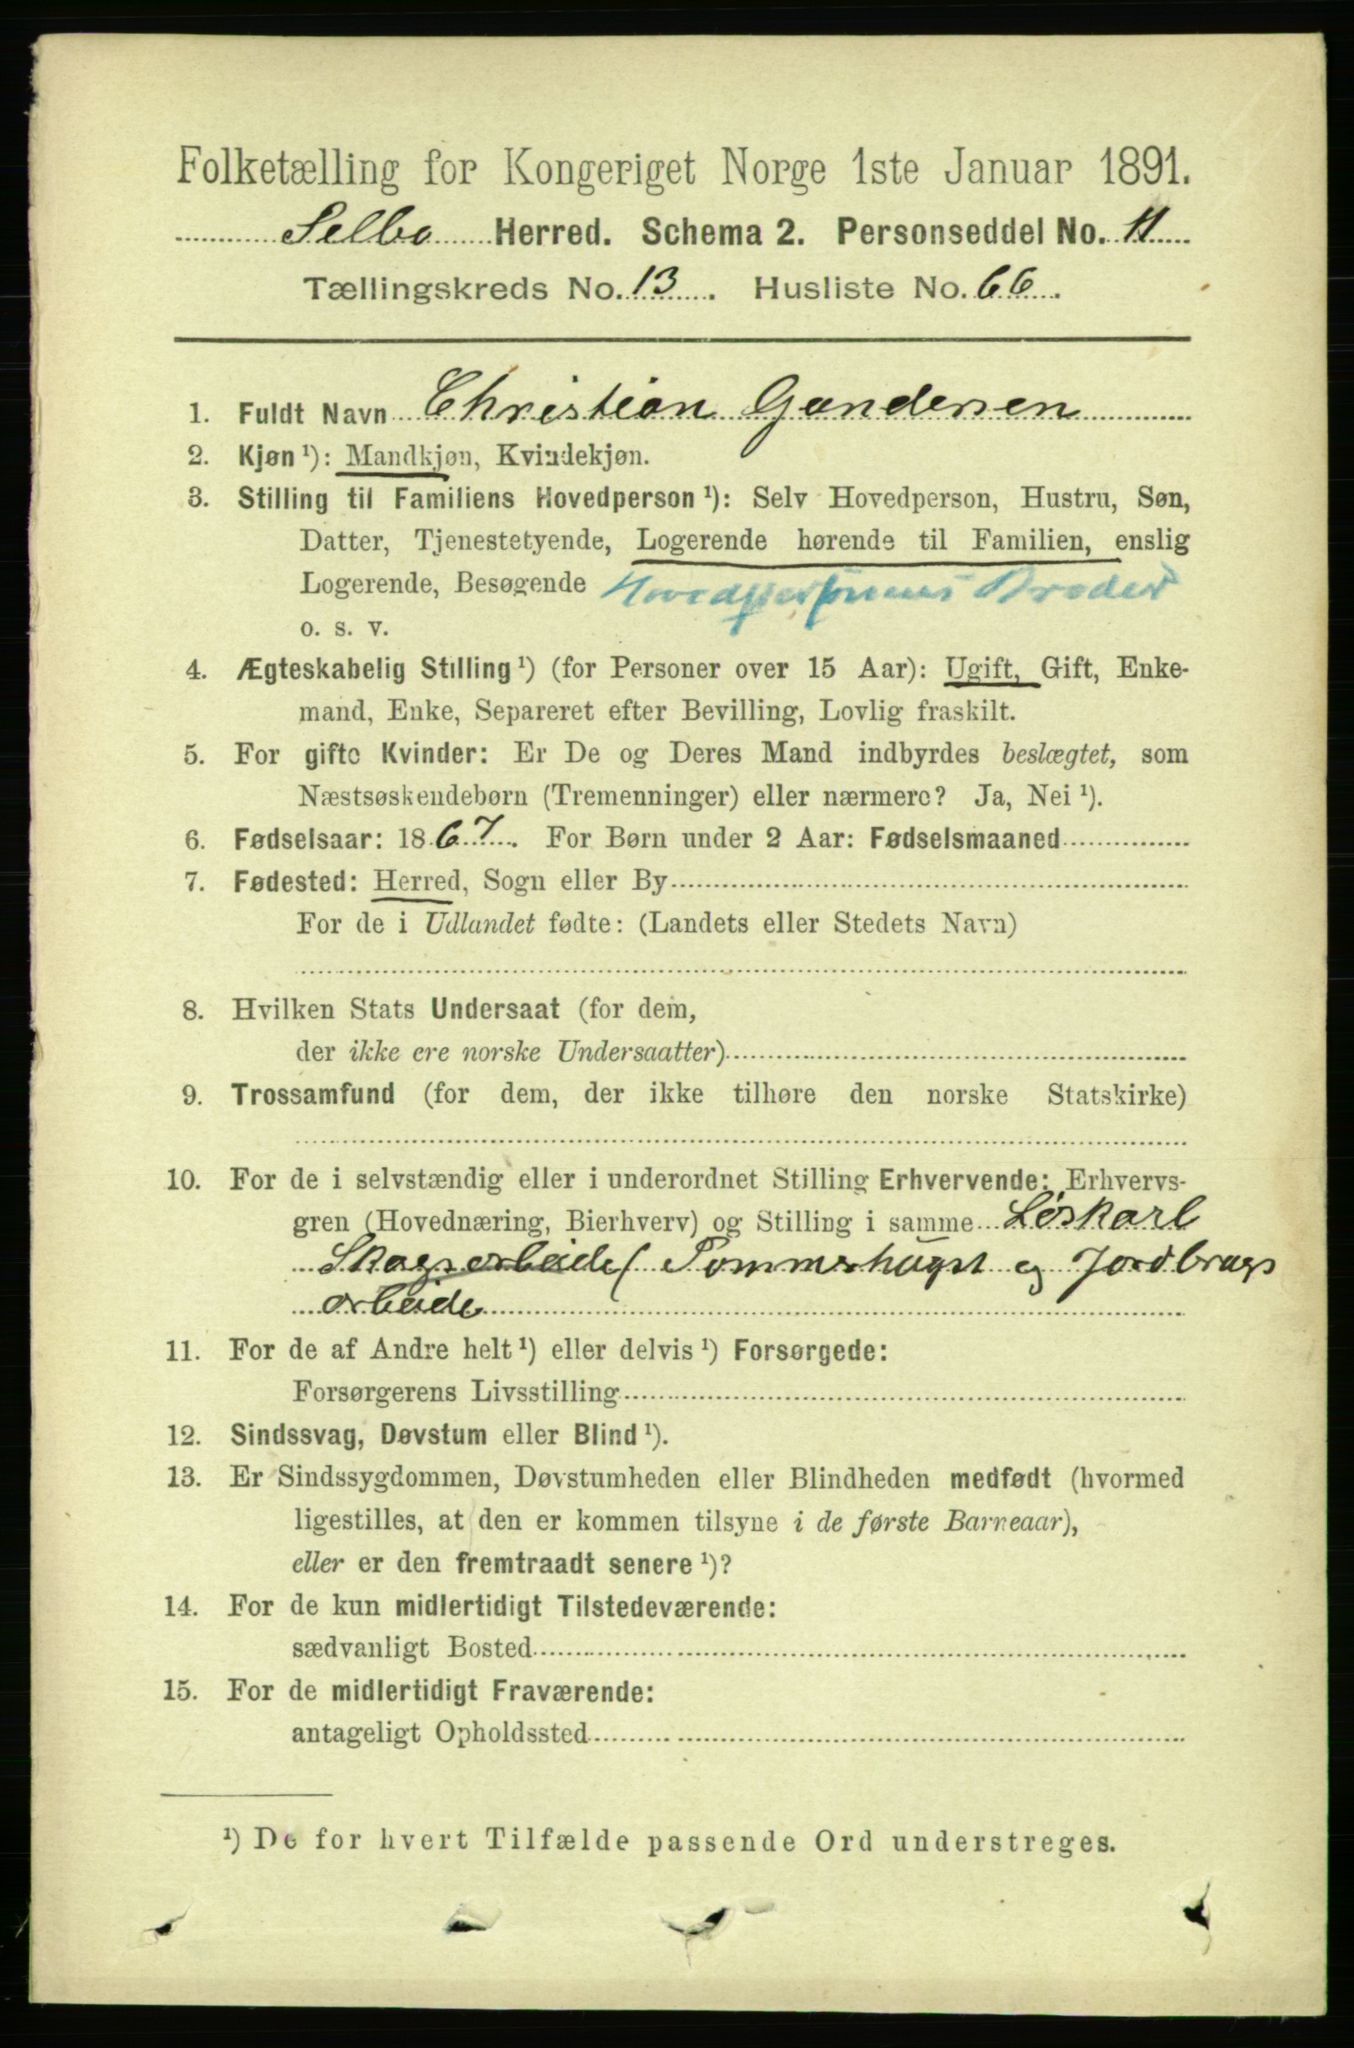 Folketælling for Kongeriget Norge 1ste Januar 1891.
Selbo Herred. Schema 2. Personseddel No. 11
Tællingskreds No. 13. Husliste No. 66.
1. Fuldt Navn Christian Gundersen
2. Kjøn ¹): Mandkjøn, Kvindekjøn.
3. Stilling til Familiens Hovedperson ¹): Selv Hovedperson, Hustru, Søn,
Datter, Tjenestetyende, Logerende hørende til Familien, enslig
Logerende, Besøgende Hovedpersonens Broder
o. s. v.
4. Ægteskabelig Stilling ¹) (for Personer over 15 Aar): Ugift, Gift, Enke-
mand, Enke, Separeret efter Bevilling, Lovlig fraskilt.
5. For gifte Kvinder: Er De og Deres Mand indbyrdes beslægtet, som
Næstsøskendebørn (Tremenninger) eller nærmere? Ja, Nei ¹).
6. Fødselsaar: 1867. For Børn under 2 Aar: Fødselsmaaned
7. Fødested: Herred, Sogn eller By
For de i Udlandet fødte: (Landets eller Stedets Navn)
8. Hvilken Stats Undersaat (for dem,
der ikke ere norske Undersaatter)
9. Trossamfund (for dem, der ikke tilhøre den norske Statskirke)
10. For de i selvstændig eller i underordnet Stilling Erhvervende: Erhvervs-
gren (Hovednæring, Bierhverv) og Stilling i samme Løskarl
Skogsarbeide ( Tømmerhugst og Jordbrugs
arbeide
11. For de af Andre helt ¹) eller delvis ¹) Forsørgede:
Forsørgerens Livsstilling
12. Sindssvag, Døvstum eller Blind ¹).
13. Er Sindssygdommen, Døvstumheden eller Blindheden medfødt (hvormed
ligestilles, at den er kommen tilsyne i de første Barneaar),
eller er den fremtraadt senere ¹)?
14. For de kun midlertidigt Tilstedeværende:
sædvanligt Bosted
15. For de midlertidigt Fraværende:
antageligt Opholdssted
¹) De for hvert Tilfælde passende Ord understreges.